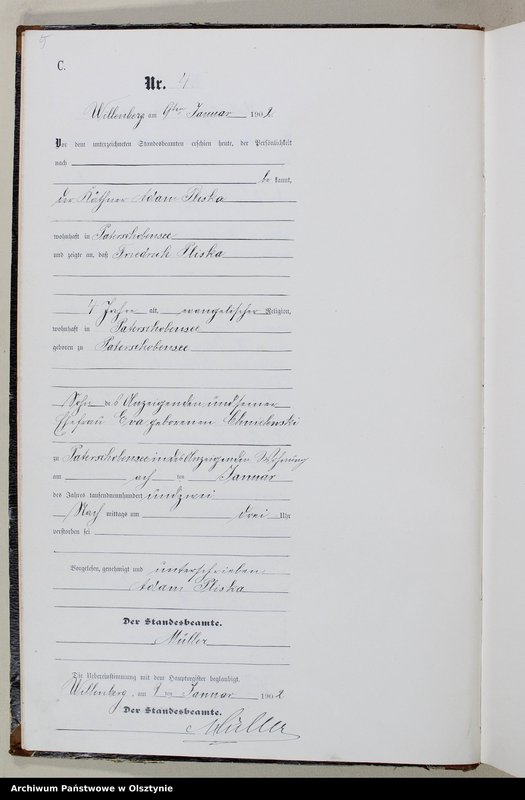 5
C.
Nr. 4
Willenberg am 9ten Januar 1902
Vor dem unterzeichneten Standesbeamten erschien heute, der Persönlichkeit
nach
be kannt,
der Käthner Adam Pliska
wohnhaft in Paterschobensee
und zeigte an, daß Friedrich Pliska
4 Jahre alt, evangelischer Religion,
wohnhaft in Paterschobensee
geboren zu Paterschobensee
Sohn des Anzeigenden und seiner
Ehefrau Eva geborenen Chmielewski
zu Paterschobensee in des Anzeigenden Wohnung
am ach ten Januar
des Jahres tausendneunhundert und zwei
Nach mittags um drei Uhr
verstorben sei
Vorgelesen, genehmigt und unterschrieben
Adam Pliska
Der Standesbeamte.
Müller
Die Uebereinstimmung mit dem Hauptregister beglaubigt.
Willenberg, am 9 ten Januar 1902
Der Standesbeamte.
Müller
Archiwum Państwowe w Olsztynie